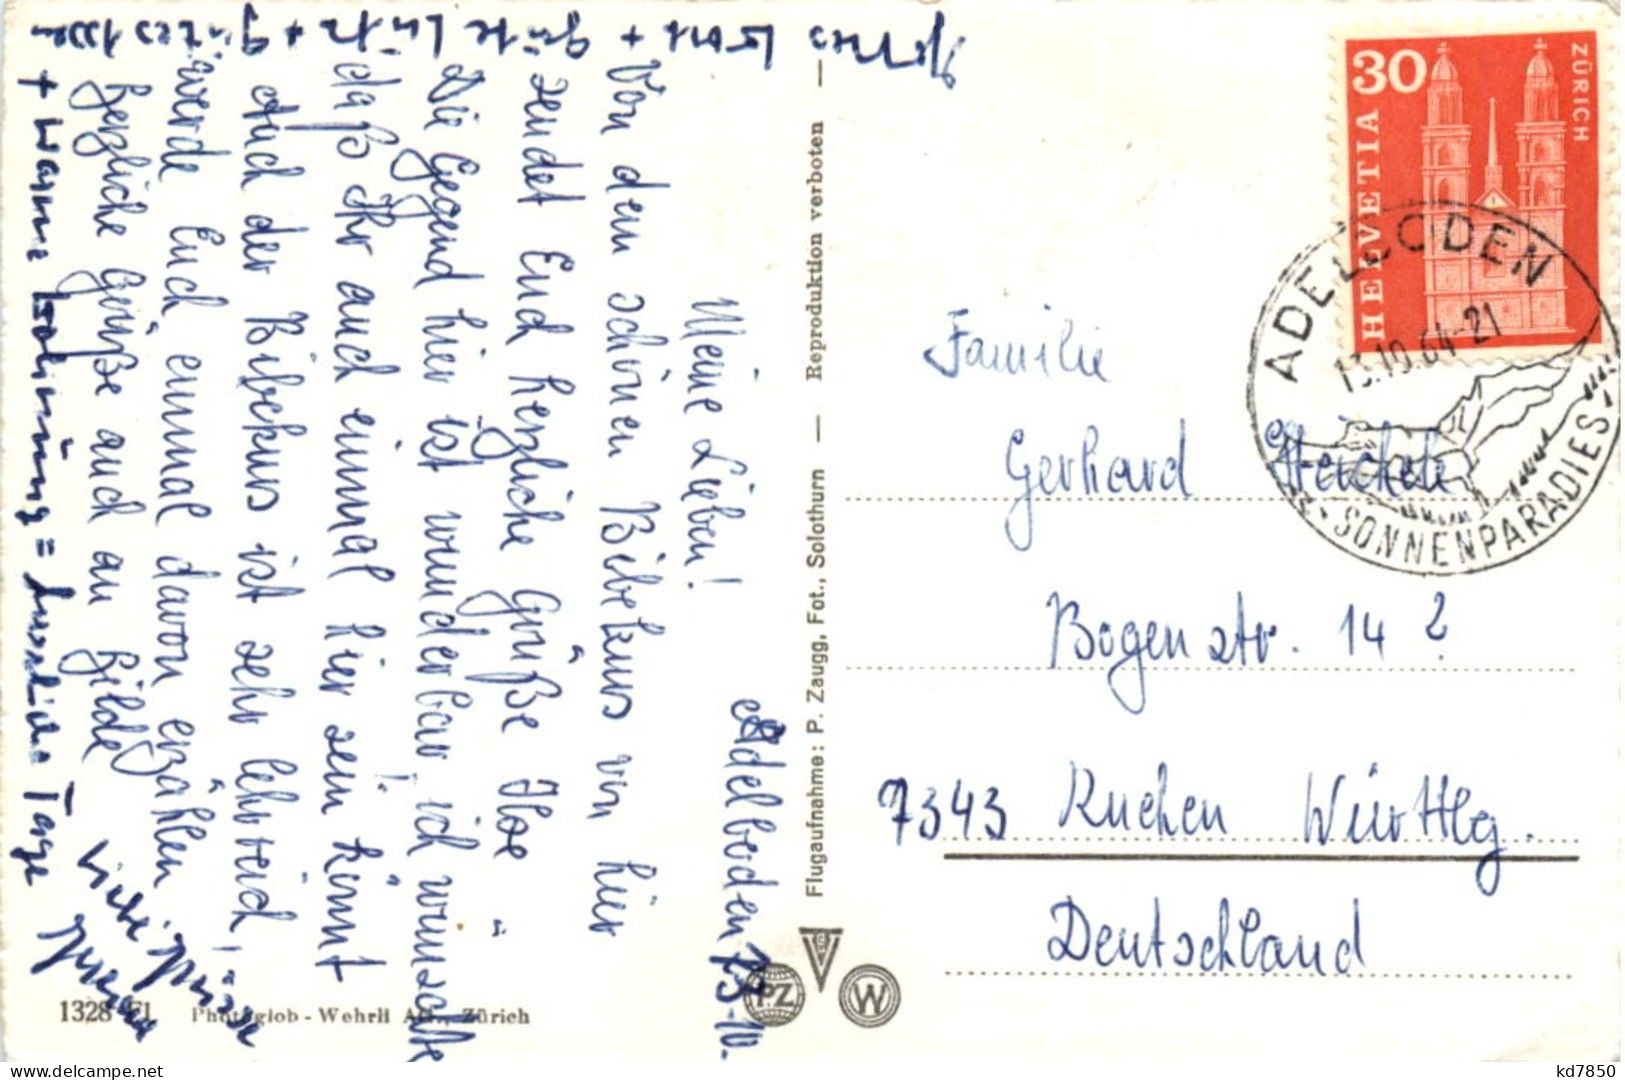 Adelboden 13.10.
Meine Lieben!
Von dem schönen Bibelkurs von hier
sendet Euch herzliche Grüße Ilse
Die Gegend hier ist wunderbar, ich wünschte
daß Ihr auch einmal hier sein könnt!
Auch der Bibelkurs ist sehr lehrreich,
werde Euch einmal davon erzählen.
herzliche Grüße auch an Hilde
Viele Grüsse
Gottes Wort + gute Luft + gutes
+ warme = herrliche Tage
Flugaufnahme: P. Zaugg, Fot., Solothurn — Reproduktion verboten —
PZ
W
1328 Fl. Photoglob - Wehrli AG., Zürich
30
HELVETIA
ZÜRICH
ADELBODEN
13.10.64-21
SONNENPARADIES
Familie
Gerhard
Bogenstr. 14 ?
7343 Kuchen Württbg.
Deutschland
kd7850
https://www.delcampe.net